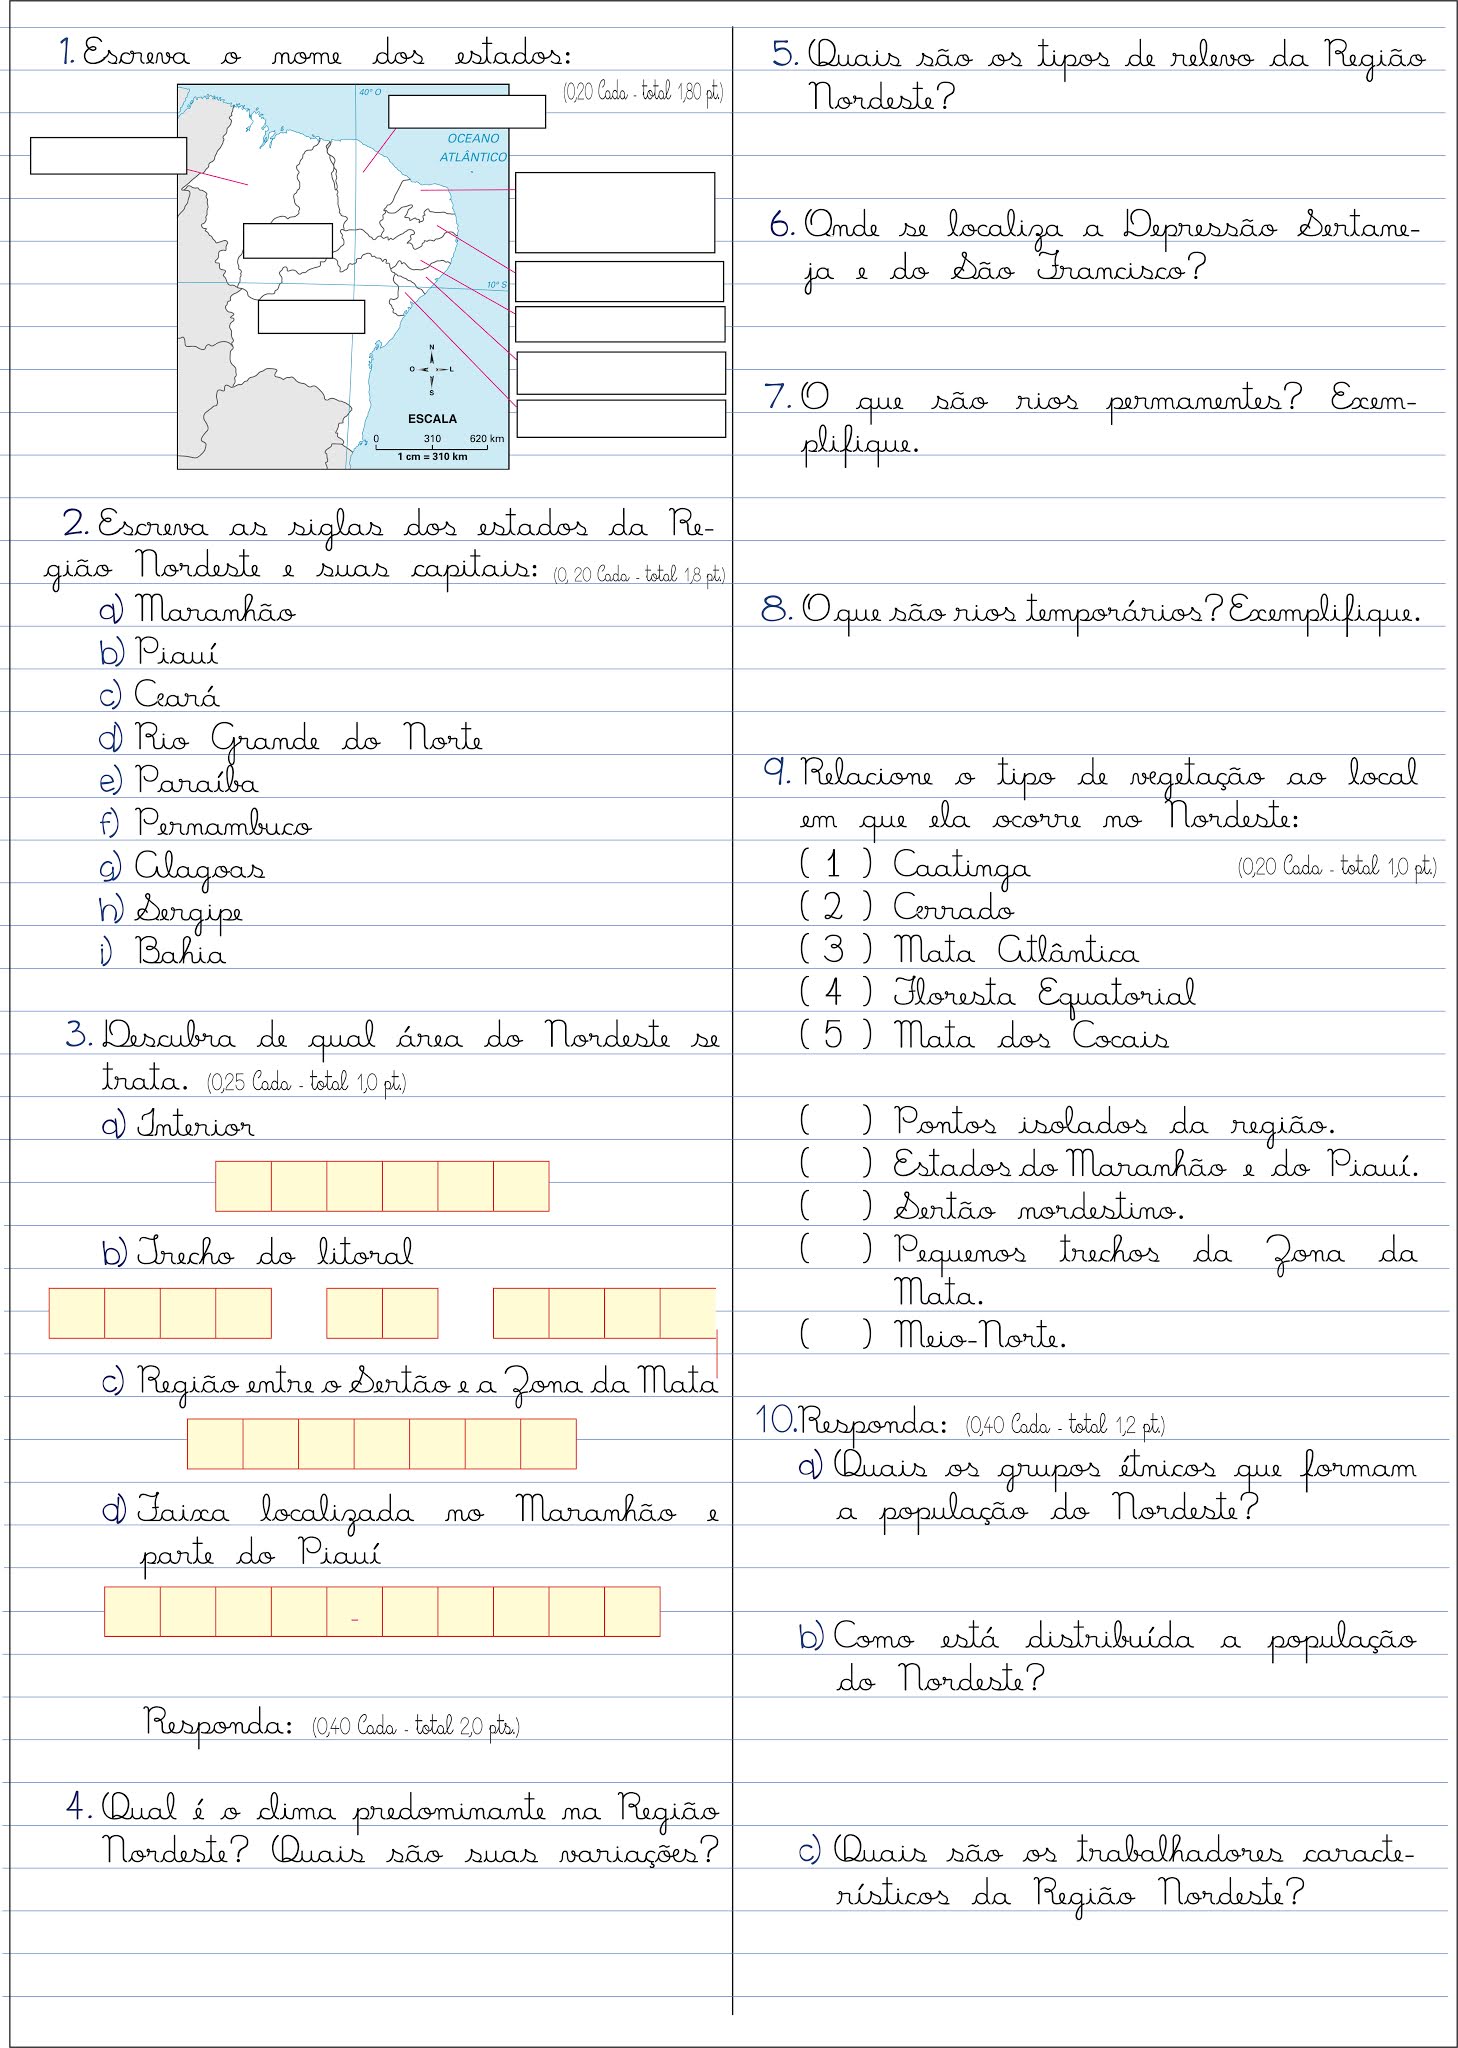 1. Escreva o nome dos estados:
(0,20 Cada - total 1,80 pt.)
40° O
OCEANO
ATLÂNTICO
10° S
N
O L
S
ESCALA
0 310 620 km
1 cm = 310 km
2. Escreva as siglas dos estados da Re-
gião Nordeste e suas capitais: (0, 20 Cada - total 1,8 pt.)
a) Maranhão
b) Piauí
c) Ceará
d) Rio Grande do Norte
e) Paraíba
f) Pernambuco
g) Alagoas
h) Sergipe
i) Bahia
3. Descubra de qual área do Nordeste se
trata. (0,25 Cada - total 1,0 pt.)
a) Interior
b) Trecho do litoral
c) Região entre o Sertão e a Zona da Mata
d) Faixa localizada no Maranhão e
parte do Piauí
-
Responda: (0,40 Cada - total 2,0 pts.)
4. Qual é o clima predominante na Região
Nordeste? Quais são suas variações?
5. Quais são os tipos de relevo da Região
Nordeste?
6. Onde se localiza a Depressão Sertane-
ja e do São Francisco?
7. O que são rios permanentes? Exem-
plifique.
8. O que são rios temporários? Exemplifique.
9. Relacione o tipo de vegetação ao local
em que ela ocorre no Nordeste:
( 1 ) Caatinga (0,20 Cada - total 1,0 pt.)
( 2 ) Cerrado
( 3 ) Mata Atlântica
( 4 ) Floresta Equatorial
( 5 ) Mata dos Cocais
( ) Pontos isolados da região.
( ) Estados do Maranhão e do Piauí.
( ) Sertão nordestino.
( ) Pequenos trechos da Zona da
Mata.
( ) Meio-Norte.
10. Responda: (0,40 Cada - total 1,2 pt.)
a) Quais os grupos étnicos que formam
a população do Nordeste?
b) Como está distribuída a população
do Nordeste?
c) Quais são os trabalhadores caracte-
rísticos da Região Nordeste?